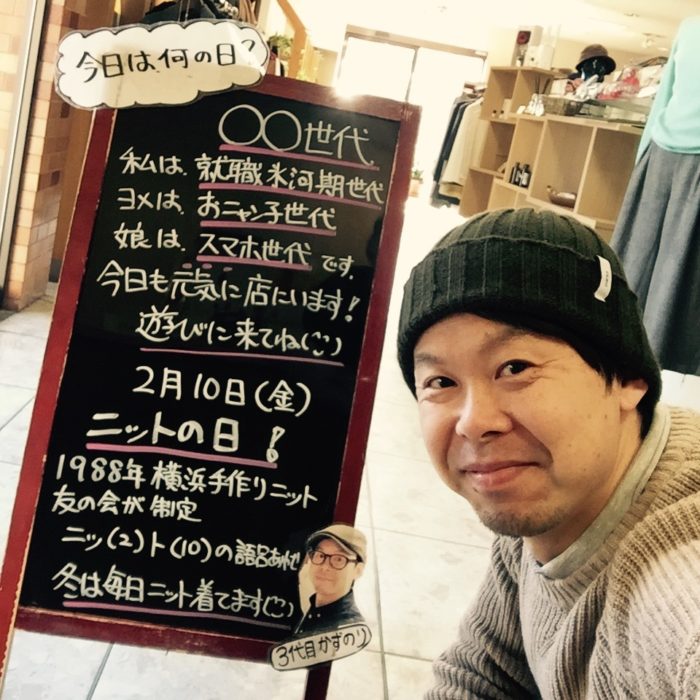 今日は何の日？
〇〇世代
私は、就職氷河期世代
ヨメは、おニャン子世代
娘は、スマホ世代です。
今日も元気に店にいます！
遊びに来てね(^^)
2月10日(金)
ニットの日！
1988年 横浜手作りニット
友の会が制定
ニッ(2)ト(10)の語呂あわせ
冬は毎日ニット着てます(^^)
3代目かずのり